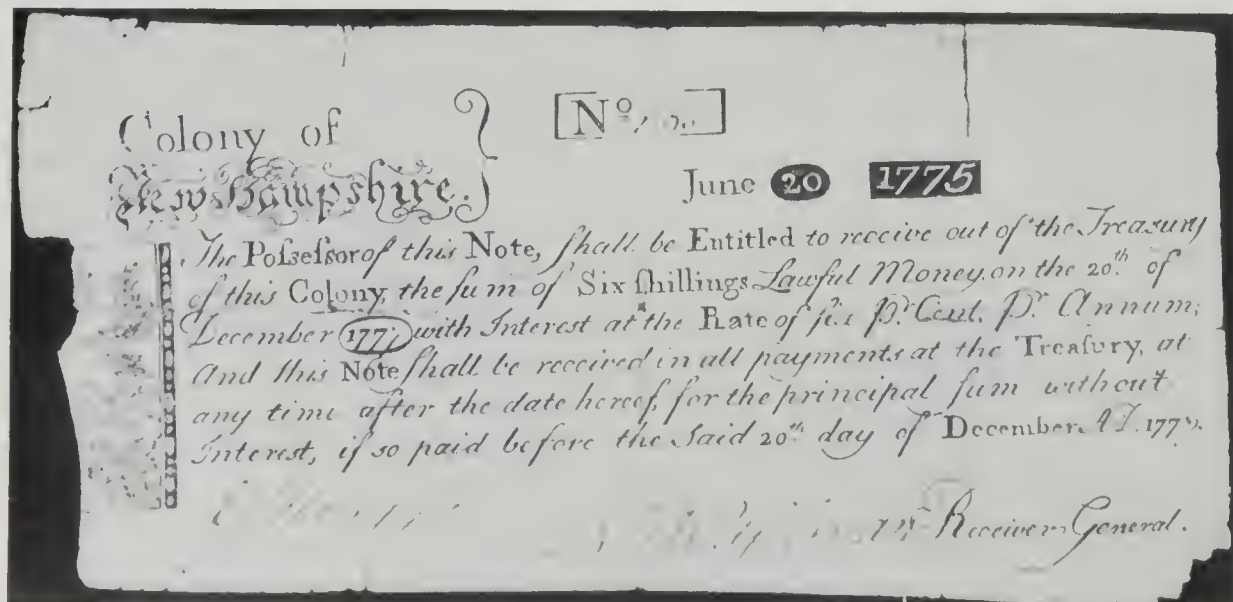 Colony of
New Hampshire.
No
June 20 1775
The Poſseſsor of this Note, ſhall be Entitled to receive out of the Treasury
of this Colony, the ſum of Six ſhillings Lawful Money, on the 20.th of
December 1777, with Interest at the Rate of ſix Pr. Cent. Pr. Annum;
And this Note ſhall be received in all payments at the Treaſury, at
any time after the date hereof, for the principal ſum without
Interest, if so paid before the Said 20.th day of December A.D. 177
Receiver General.